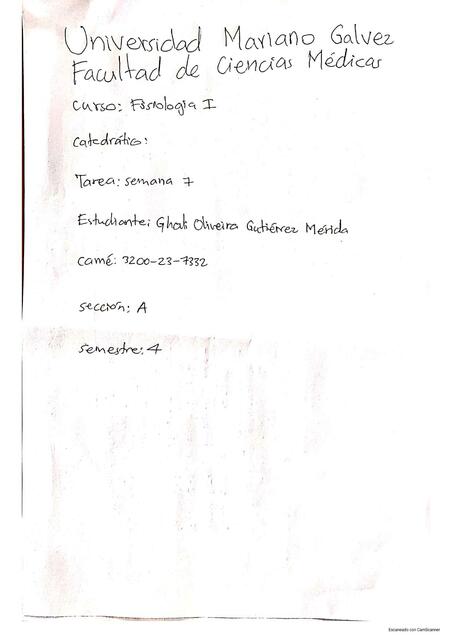 Universidad Mariano Galvez
Facultad de Ciencias Médicas
Curso: Fisiologia I
Catedrátio:
Tarea: semana 7
Estudiante: Ghali Oliveira Gutiérrez Mérida
Carné: 3200-23-7332
sección: A
semestre: 4
Escaneado con CamScanner